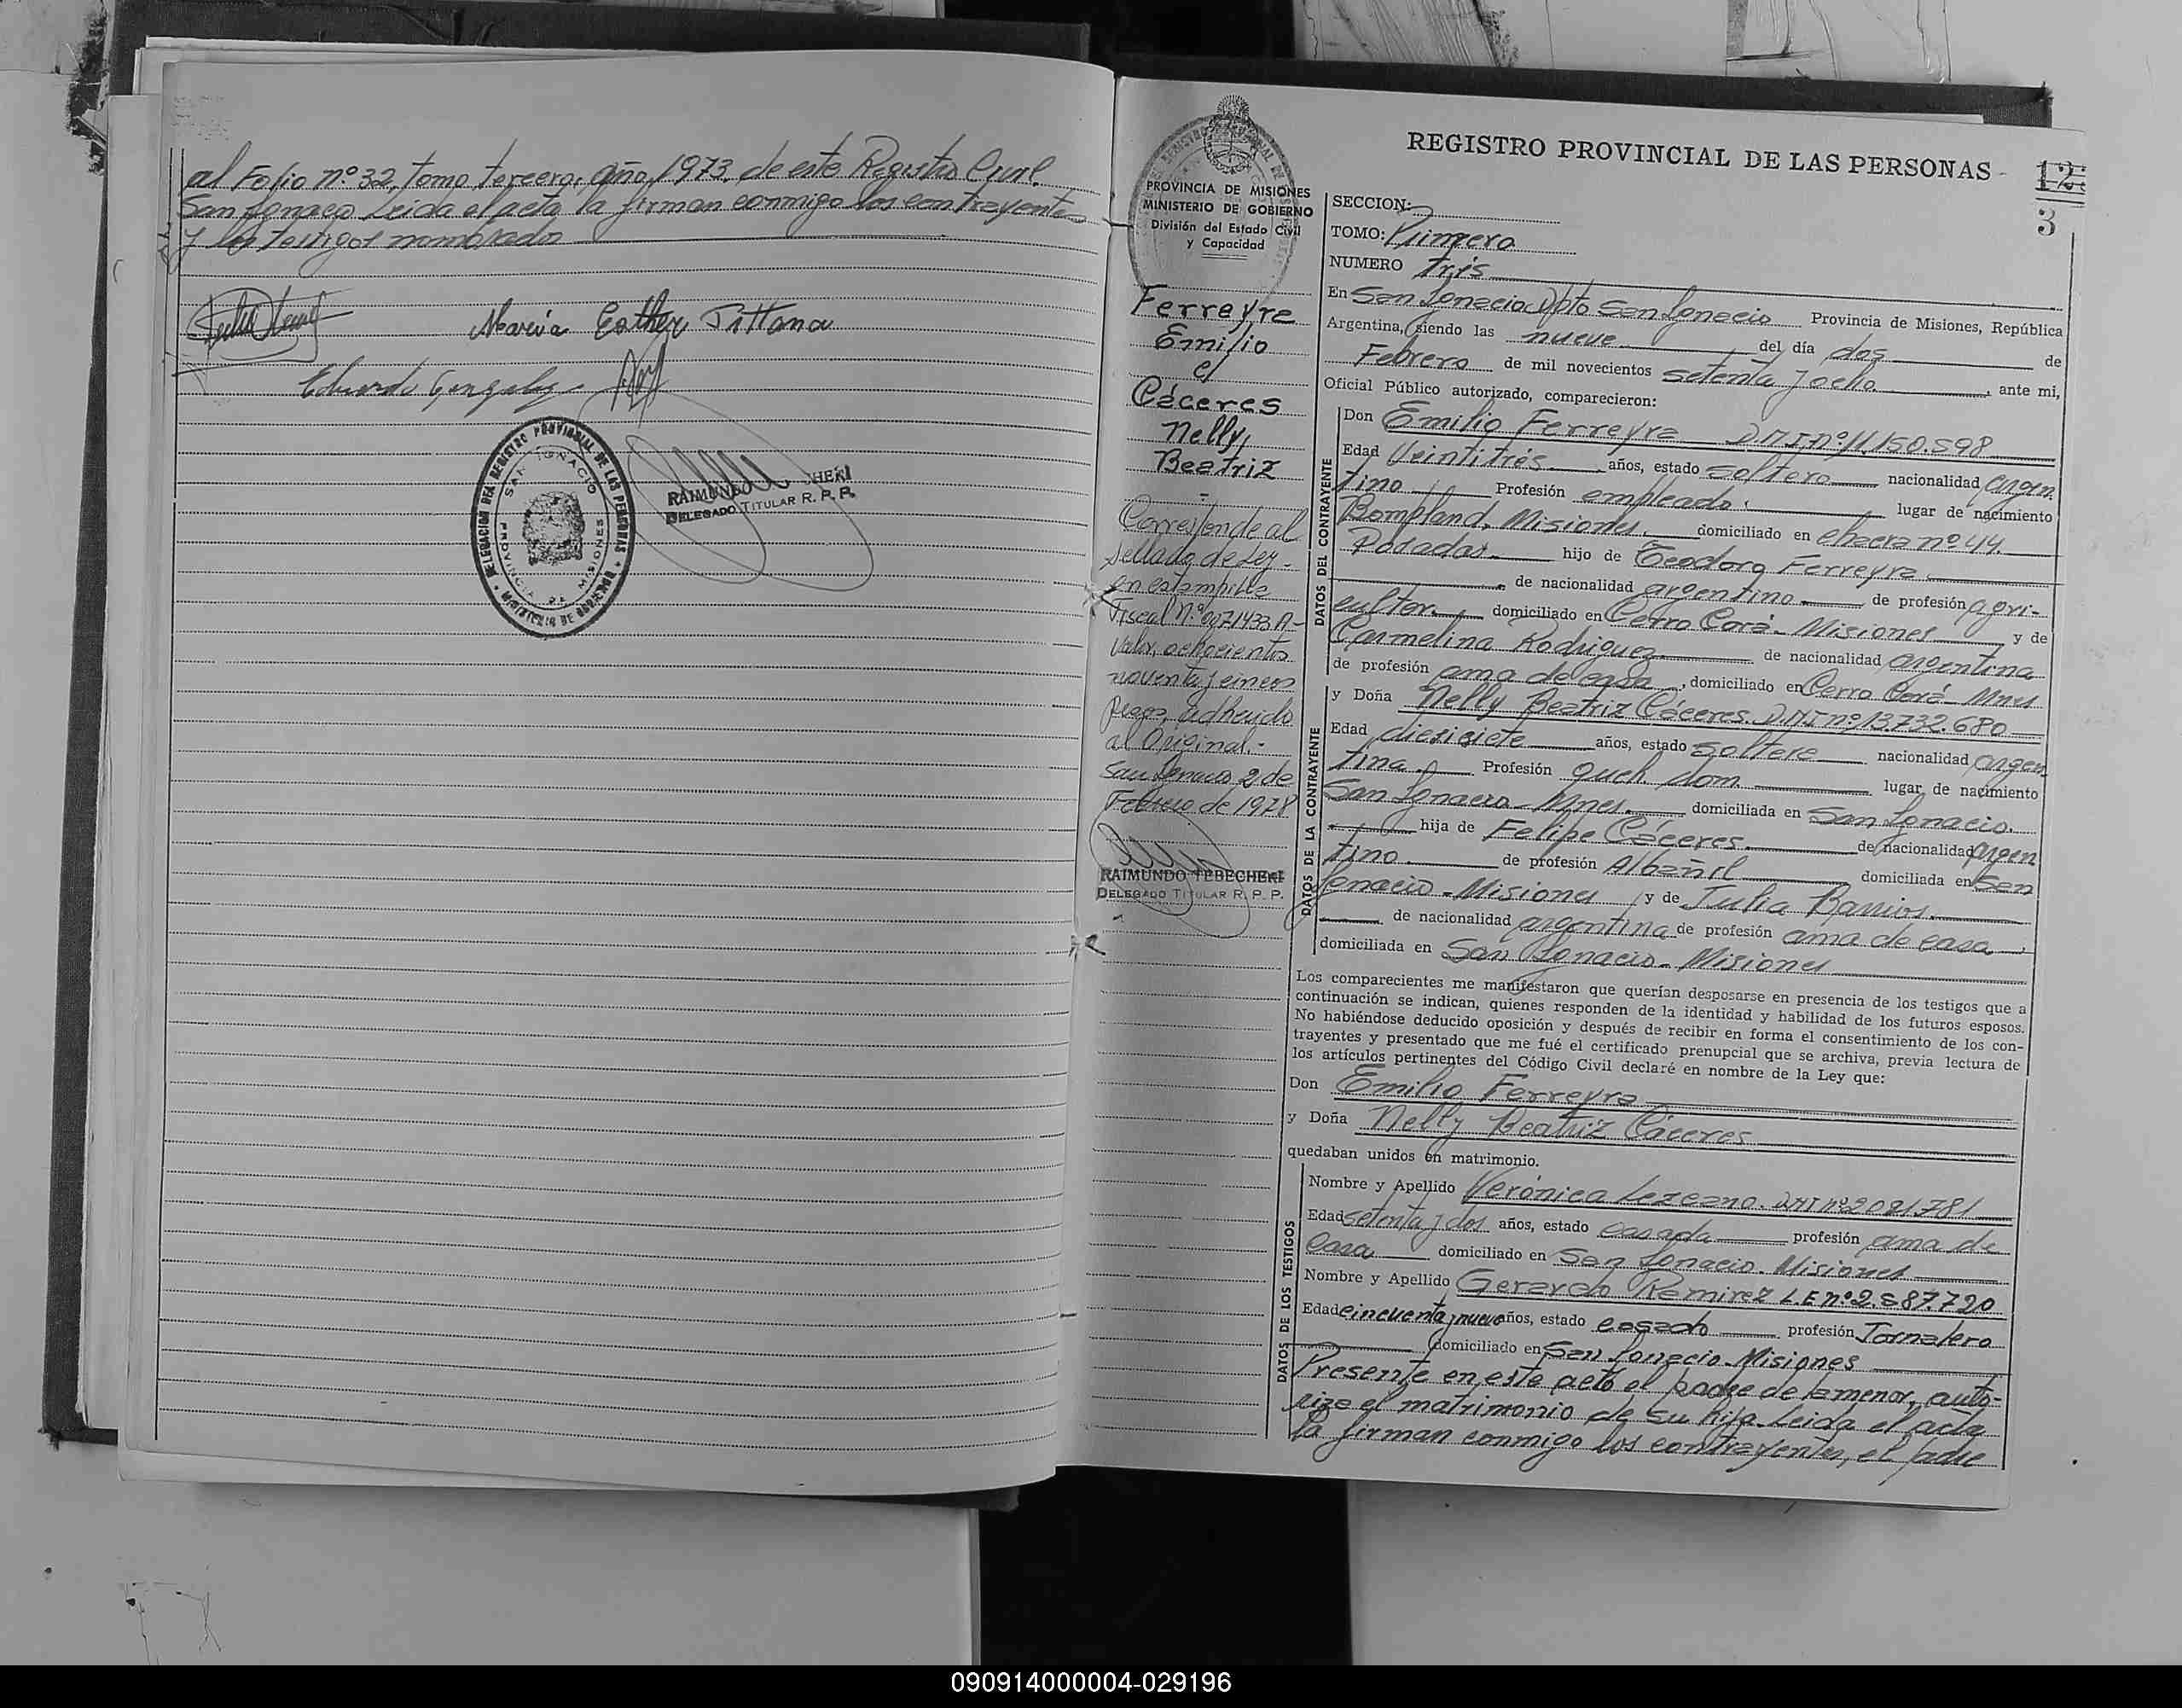 al Folio nº 32, tomo tercero, año 1973, de este Registro Civil.
San Ignacio Leida el acta la firman conmigo los contrayentes
y los testigos nombrados
Maria Esther Pittana
Eduardo Gonzalez
DELEGACION DEL REGISTRO PROVINCIAL DE LAS PERSONAS * MINISTERIO DE GOBIERNO *
SAN IGNACIO
PROVINCIA DE MISIONES
RAIMUNDO CHERI
DELEGADO TITULAR R. P. P.
PROVINCIA DE MISIONES
MINISTERIO DE GOBIERNO
División del Estado Civil
y Capacidad
Ferreyra
Emilio
c/
Cáceres
Nelly,
Beatriz
Corresponde al
sellado de Ley-
en estampilla
Fiscal Nº 0071433 A-
Valor, ochocientos
noventa y cinco
pesos, adherido
al Original.-
San Ignacio 2 de
Febrero de 1978
RAIMUNDO TEBECHERI
DELEGADO TITULAR R. P. P.
REGISTRO PROVINCIAL DE LAS PERSONAS -
12
3
SECCION:
TOMO: Primero
NUMERO Tres
En San Ignacio Dpto San Ignacio Provincia de Misiones, República
Argentina, siendo las nueve del día dos de
Febrero de mil novecientos setenta y ocho, ante mi,
Oficial Público autorizado, comparecieron:
DATOS DEL CONTRAYENTE
Don Emilio Ferreyra D.N.I. nº 11.150.598
Edad Veintitrés años, estado soltero nacionalidad argen
tino Profesión empleado. lugar de nacimiento
Bompland, Misiones. domiciliado en chacra nº 44.
Posadas. hijo de Teodoro Ferreyra
, de nacionalidad argentino de profesión agri-
cultor, domiciliado en Cerro Corá - Misiones y de
Carmelina Rodriguez de nacionalidad argentina
de profesión ama de casa, domiciliado en Cerro Corá - Mnes
DATOS DE LA CONTRAYENTE
y Doña Nelly Beatriz Cáceres. D.N.I nº 13.732.680
Edad diesisiete años, estado soltera nacionalidad argen
tina. Profesión Queh. dom. lugar de nacimiento
San Ignacio - Mnes. domiciliada en San Ignacio.
hija de Felipe Cáceres. de nacionalidad Argen
tino. de profesión Albañil domiciliada en San
Ignacio - Misiones y de Julia Barrios.
de nacionalidad argentina de profesión ama de casa,
domiciliada en San Ignacio - Misiones
Los comparecientes me manifestaron que querían desposarse en presencia de los testigos que a
continuación se indican, quienes responden de la identidad y habilidad de los futuros esposos.
No habiéndose deducido oposición y después de recibir en forma el consentimiento de los con-
trayentes y presentado que me fué el certificado prenupcial que se archiva, previa lectura de
los artículos pertinentes del Código Civil declaré en nombre de la Ley que:
Don Emilio Ferreyra
y Doña Nelly Beatriz Cáceres
quedaban unidos en matrimonio.
DATOS DE LOS TESTIGOS
Nombre y Apellido Verónica Lezcano. DNI nº 2021781
Edad setenta y dos años, estado casada profesión ama de
casa domiciliado en San Ignacio. Misiones
Nombre y Apellido Gerardo Ramirez L.E nº 2.587.720
Edad cincuenta y nueve años, estado casado profesión Jornalero
domiciliado en San Ignacio. Misiones
Presente en este acto el padre de la menor, auto-
riza el matrimonio de su hija. Leida el acta
la firman conmigo los contrayentes, el padre
090914000004-029196